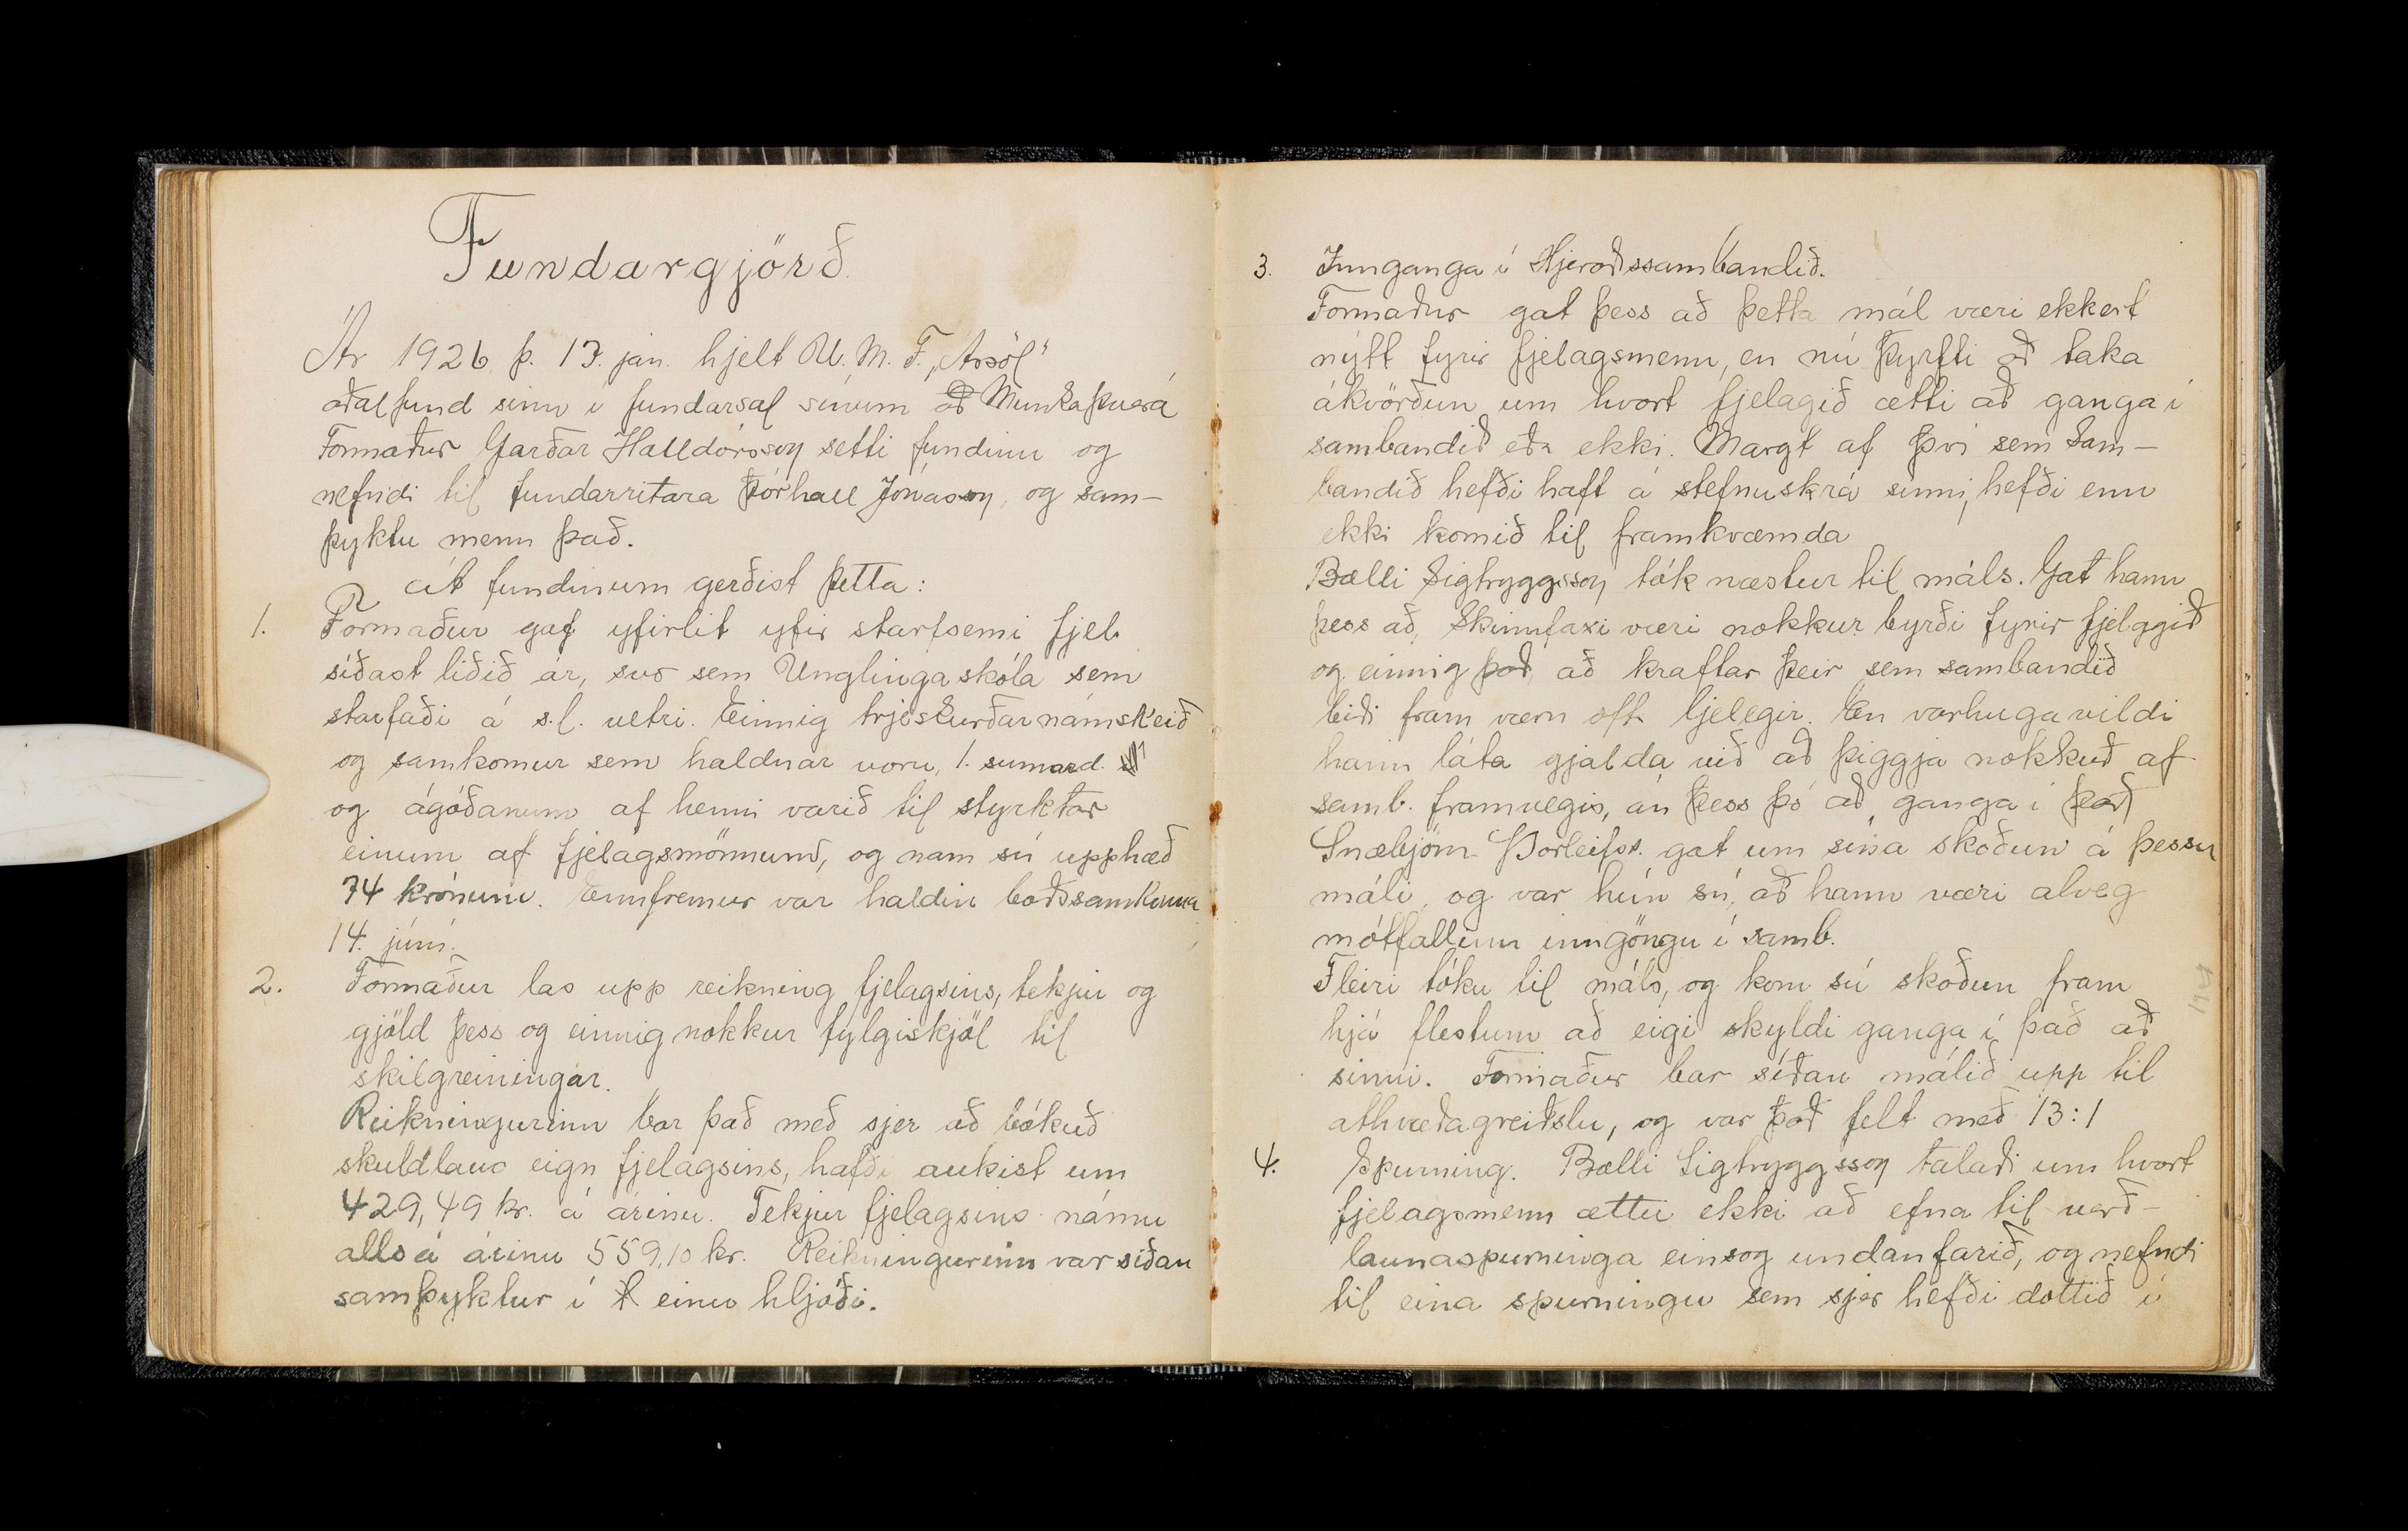 Fundargjörð.
Ár 1926 þ. 13. jan. hjelt U. M. F. „Ársól"
aðalfund sinn í fundarsal sínum að Munkaþverá
Formaður Garðar Halldórsson setti fundinn og
nefndi til fundarritara Þórhall Jónasson, og sam-
þyktu menn það.
Á fundinum gerðist þetta:
1. Formaður gaf yfirlit yfir starfsemi fjel.
síðast liðið ár, svo sem Unglingaskóla sem
starfaði á s.l. vetri. Einnig trjeskurðarnámskeið
og samkomur sem haldnar voru, 1. sumard.
og ágóðanum af henni varið til styrktar
einum af fjelagsmönnum, og nam sú upphæð
74 krónum. Ennfremur var haldin boðssamkoma
14. júní.
2. Formaður las upp reikning fjelagsins, tekjur og
gjöld þess og einnig nokkur fylgiskjöl til
skilgreiningar.
Reikningurinn bar það með sjer að bókuð
skuldlaus eign fjelagsins, hafði aukist um
429,49 kr. á árinu. Tekjur fjelagsins námu
alls á árinu 559,10 kr. Reikningurinn var síðan
samþyktur í einu hljóði.
3. Innganga í Hjeraðssambandið.
Formaður gat þess að þetta mál væri ekkert
nýtt fyrir fjelagsmenn, en nú þyrfti að taka
ákvörðun um hvort fjelagið ætti að ganga í
sambandið eða ekki. Margt af því sem Sam-
bandið hefði haft á stefnuskrá sinni, hefði enn
ekki komið til framkvæmda
Bælli Sigtryggsson tók næstur til máls. Gat hann
þess að, Skinnfaxi væri nokkur byrði fyrir fjelagið
og einnig það, að kraftar þeir sem sambandið
biði fram væru oft ljelegir. En varhuga vildi
hann láta gjalda við að þiggja nokkuð af
samb. framvegis, án þess þó að ganga í það
Snæbjörn Þorleifss. gat um sína skoðun á þessu
máli, og var hún sú, að hann væri alveg
mótfallinn inngöngu í samb.
Fleiri tóku til máls, og kom sú skoðun fram
hjá flestum að eigi skyldi ganga í það að
sinni. Formaður bar síðan málið upp til
athvæðagreiðslu, og var það felt með 13:1
4. Spurning. Bælli Sigtryggsson talaði um hvort
fjelagsmenn ættu ekki að efna til verð-
launaspurninga einsog undanfarið, og nefndi
til eina spurningu sem sjer hefði dottið í